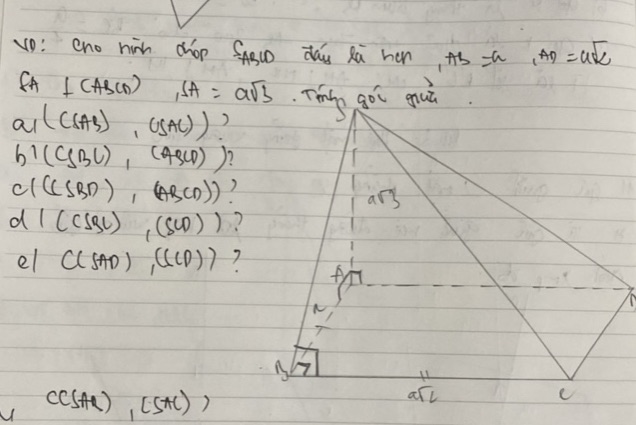 VD: Cho hình chóp SABCD đáy là hcn, AB = a, AD = a√2
SA ⊥ (ABCD), SA = a√3. Tính góc giữa.
a) ((SAB), (SAC))?
b) ((SBC), (ABCD))?
c) ((SBD), (ABCD))?
d) ((SBC), (SCD))?
e) ((SAD), (SCD))?
a√3
A
B
a√2
C
((SAB), (SAC))